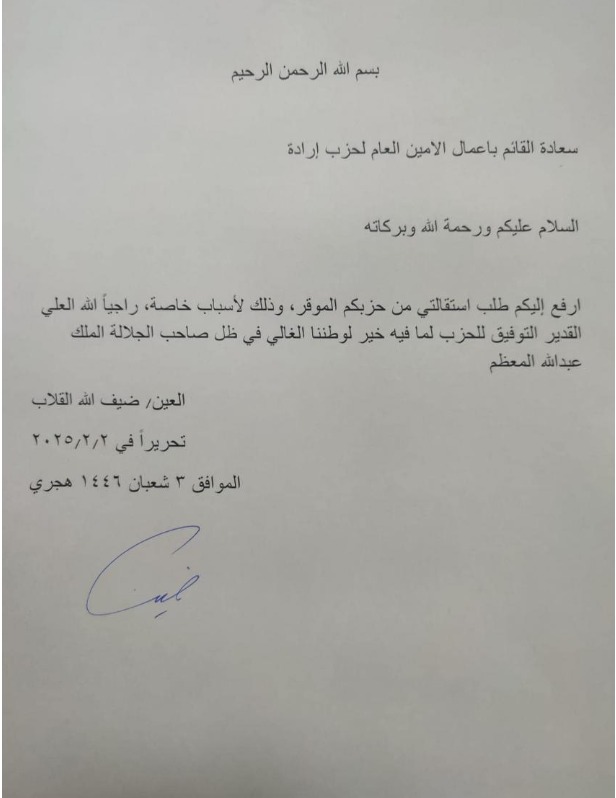 بسم الله الرحمن الرحيم
سعادة القائم باعمال الامين العام لحزب إرادة
السلام عليكم ورحمة الله وبركاته
ارفع إليكم طلب استقالتي من حزبكم الموقر، وذلك لأسباب خاصة، راجياً الله العلي
القدير التوفيق للحزب لما فيه خير لوطننا الغالي في ظل صاحب الجلالة الملك
عبدالله المعظم
العين/ ضيف الله القلاب
تحريراً في ٢٠٢٥/٢/٢
الموافق ٣ شعبان ١٤٤٦ هجري